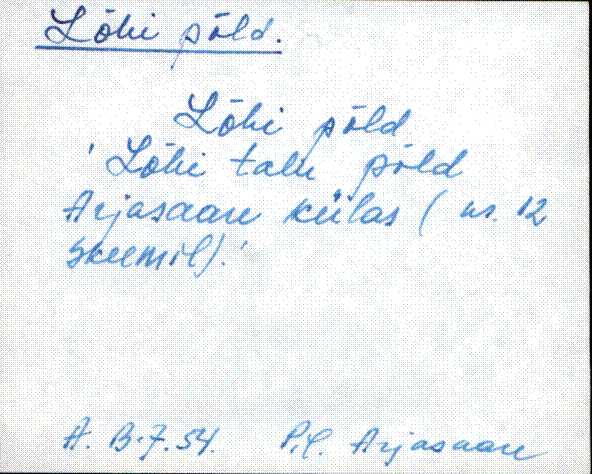 Lõhi põld.
Lõhi põld
'Lõhi talu põld
Arjasaare külas (nr. 12
skeemil).'
A. B. 7.54. Arjasaare